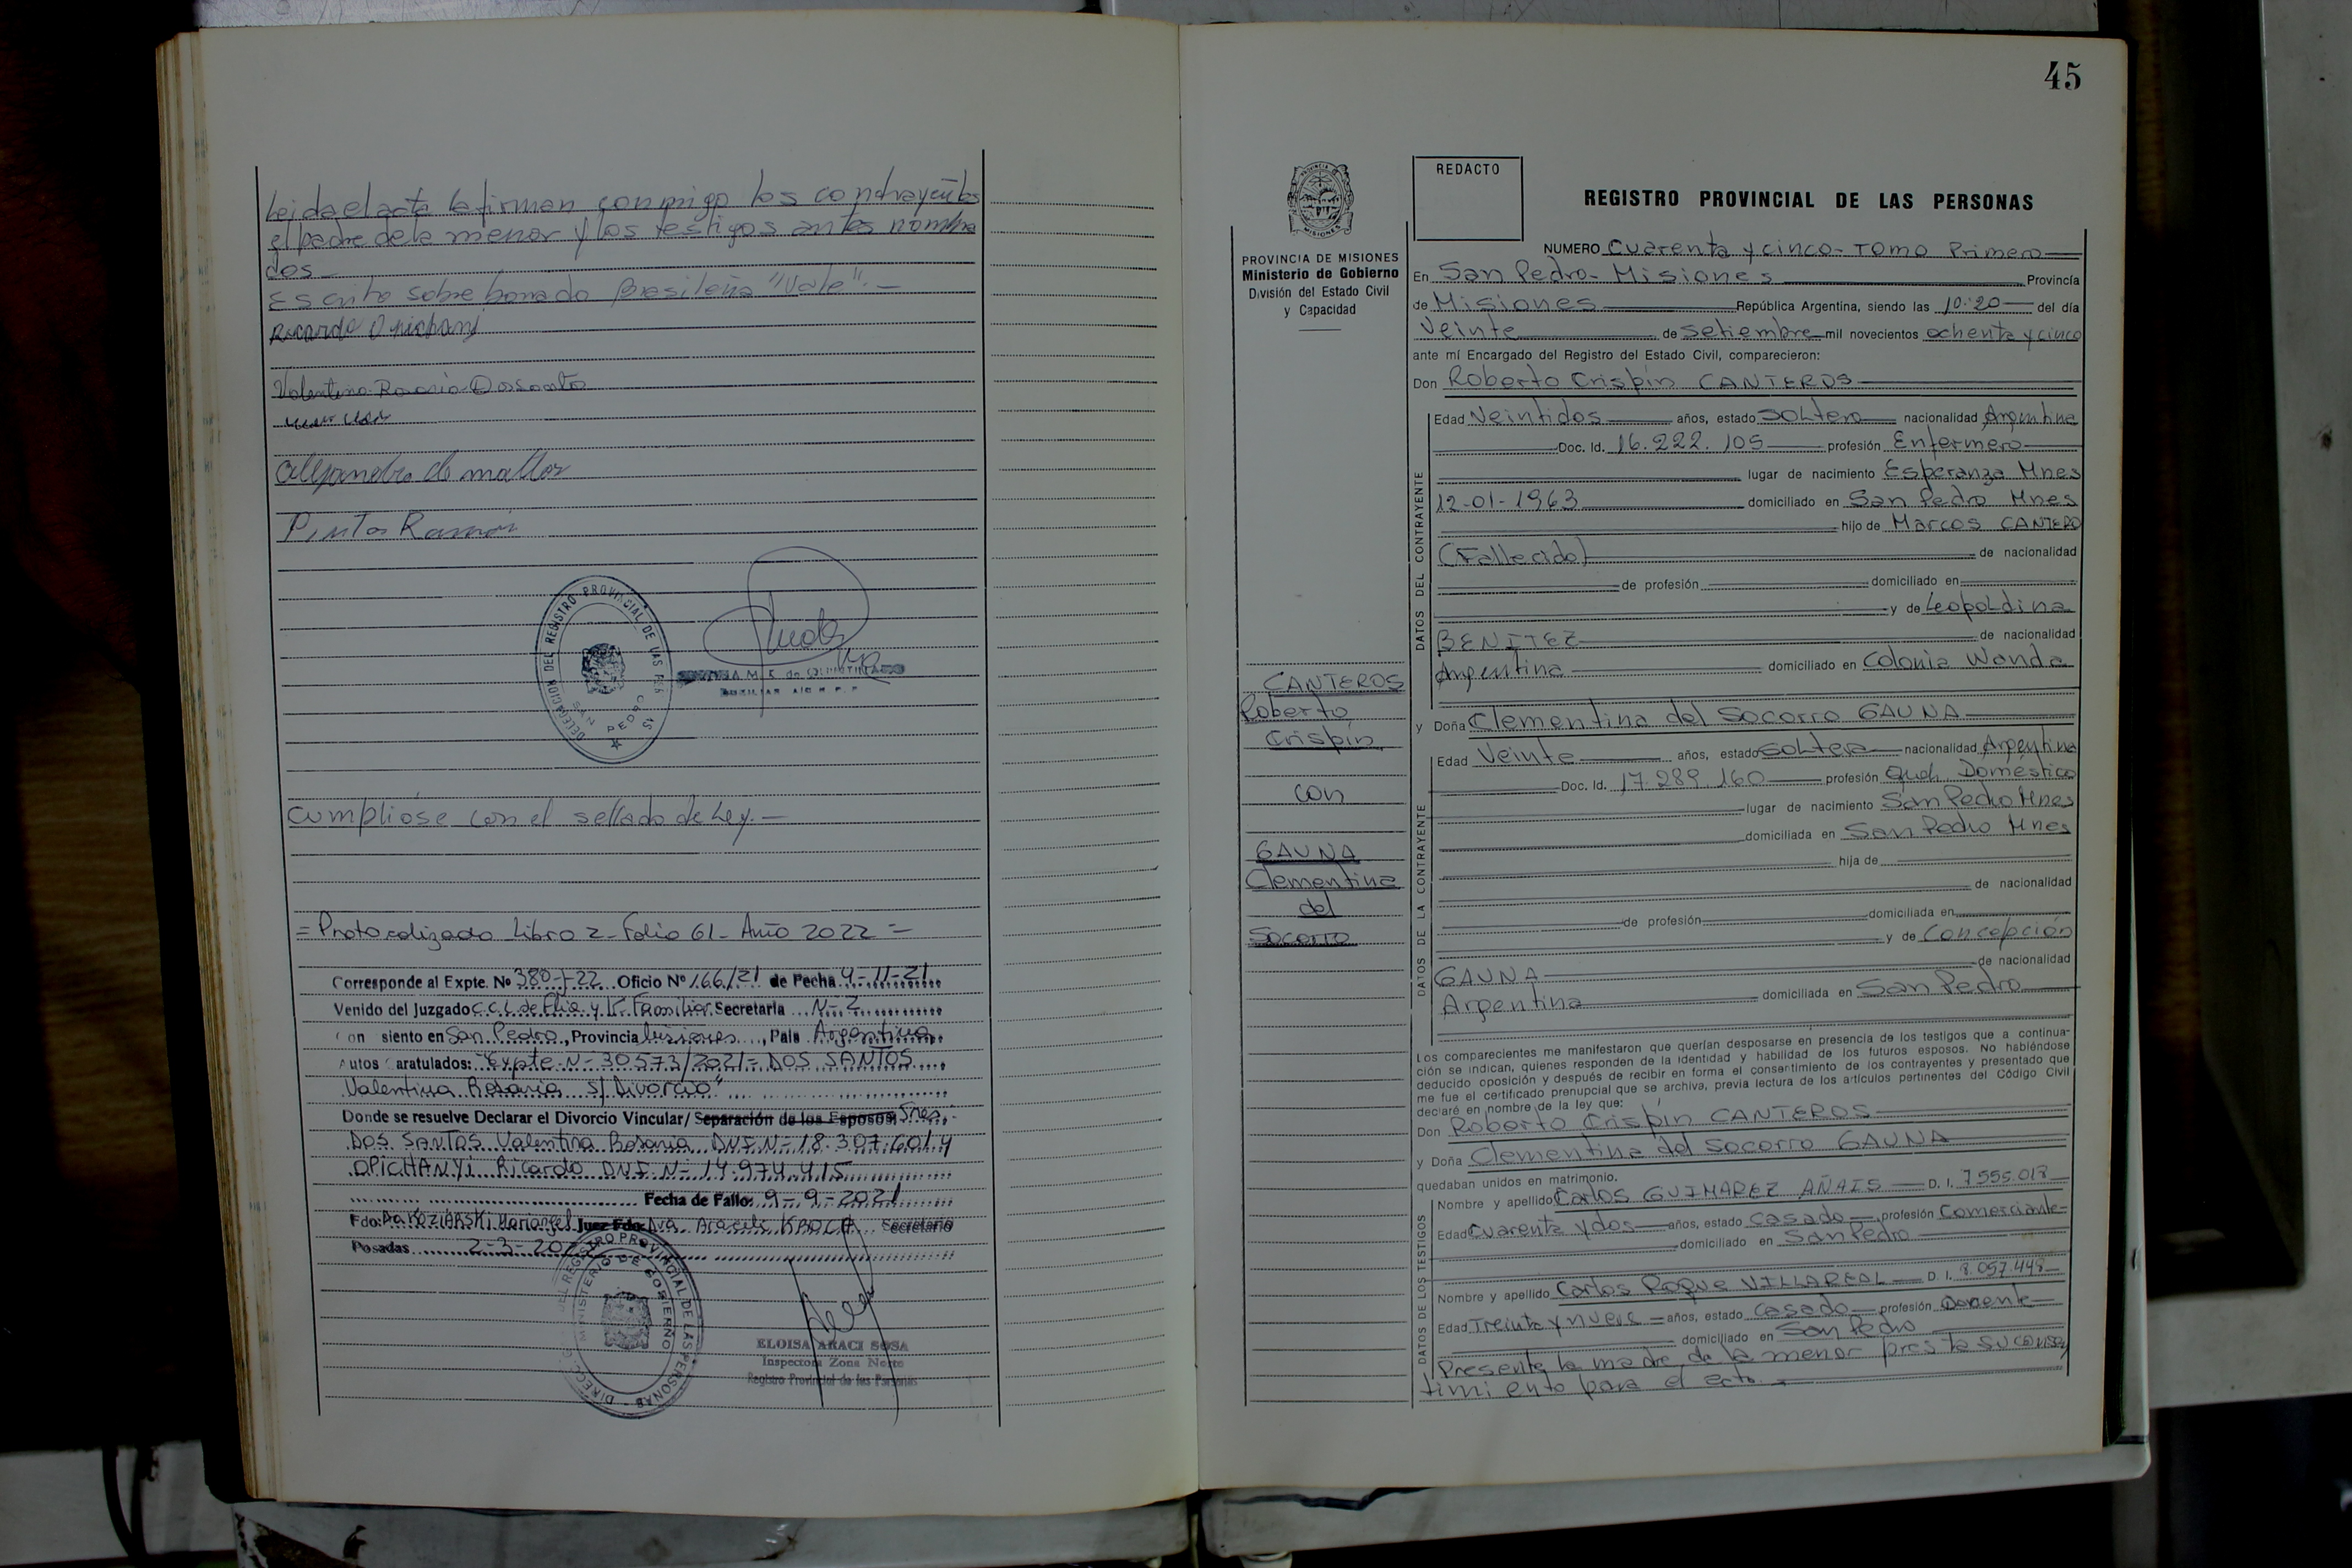 Leida el acta la firman conmigo los contrayentes
el padre de la menor y los testigos antes nombra
dos
Escrito sobre borrado Brasileña "Vale".-
Ricardo Opichanyi
Valentina Rosaria Dossantos
Pinto Ramón
DELEGACION DEL REGISTRO PROVINCIAL DE LAS PER
SAN PEDRO
Cumpliose con el sellado de Ley.-
= Protocolizado Libro 2 - Folio 61 - Año 2022 =
Corresponde al Expte. Nº 380-/-22 Oficio Nº 166/21 de Fecha 4-11-21
Venido del Juzgado C.C.L. de Flia y V. Familiar Secretaría N-2
Con siento en San Pedro, Provincia Misiones, País Argentina
Autos Caratulados: "Expte N- 30573/2021= DOS SANTOS
Valentina Rosaria s/ Divorcio"
Donde se resuelve Declarar el Divorcio Vincular/ Separación de los Esposos Sres.
DOS SANTOS Valentina Rosaria DNI N- 18.307.601 y
OPICHANYI Ricardo DNI N- 14.974.415
Fecha de Fallo: 9-9-2021
Fdo: Mariangel Juez Fdo: Dra. Araceli Secretario
Posadas 2-3-20
DIRECC. G. DEL REGISTRO PROVINCIAL DE LAS PERSONAS
MINISTERIO DE GOBIERNO
ELOISA ARACI SOSA
Inspectora Zona Norte
Registro Provincial de las Personas
45
PROVINCIA
MISIONES
PROVINCIA DE MISIONES
Ministerio de Gobierno
División del Estado Civil
y Capacidad
CANTEROS
Roberto
Crispín
con
GAUNA
Clementina
del
Socorro
REDACTO
REGISTRO PROVINCIAL DE LAS PERSONAS
NUMERO Cuarenta y cinco - Tomo Primero
En San Pedro - Misiones Provincia
de Misiones República Argentina, siendo las 10:20 del día
Veinte de Setiembre mil novecientos ochenta y cinco
ante mí Encargado del Registro del Estado Civil, comparecieron:
Don Roberto Crispín CANTEROS
DATOS DEL CONTRAYENTE
Edad Veintidos años, estado soltero nacionalidad Argentina
Doc. Id. 16.222.105 profesión Enfermero
lugar de nacimiento Esperanza Mnes
12-01-1963 domiciliado en San Pedro Mnes
hijo de Marcos CANTERO
(Fallecido) de nacionalidad
de profesión domiciliado en
y de Leopoldina
BENITEZ de nacionalidad
Argentina domiciliado en Colonia Wanda
y Doña Clementina del Socorro GAUNA
DATOS DE LA CONTRAYENTE
Edad Veinte años, estado soltera nacionalidad Argentina
Doc. Id. 17.289.160 profesión Queh. Doméstico
lugar de nacimiento San Pedro Mnes
domiciliada en San Pedro Mnes
hija de
de nacionalidad
de profesión domiciliada en
y de Concepción
GAUNA de nacionalidad
Argentina domiciliada en San Pedro
Los comparecientes me manifestaron que querían desposarse en presencia de los testigos que a continua-
ción se indican, quienes responden de la identidad y habilidad de los futuros esposos. No habiéndose
deducido oposición y después de recibir en forma el consentimiento de los contrayentes y presentado que
me fue el certificado prenupcial que se archiva, previa lectura de los artículos pertinentes del Código Civil
declaré en nombre de la ley que:
Don Roberto Crispín CANTEROS
y Doña Clementina del Socorro GAUNA
quedaban unidos en matrimonio.
DATOS DE LOS TESTIGOS
Nombre y apellido Carlos GUIMAREZ AÑAIS D. I. 7.555.018
Edad Cuarenta y dos años, estado casado profesión Comerciante
domiciliado en San Pedro
Nombre y apellido Carlos Roque VILLAREAL D. I. 8.057.448
Edad Treinta y nueve años, estado casado profesión Docente
domiciliado en San Pedro
Presente la madre de la menor presta su consen
timiento para el acto.-